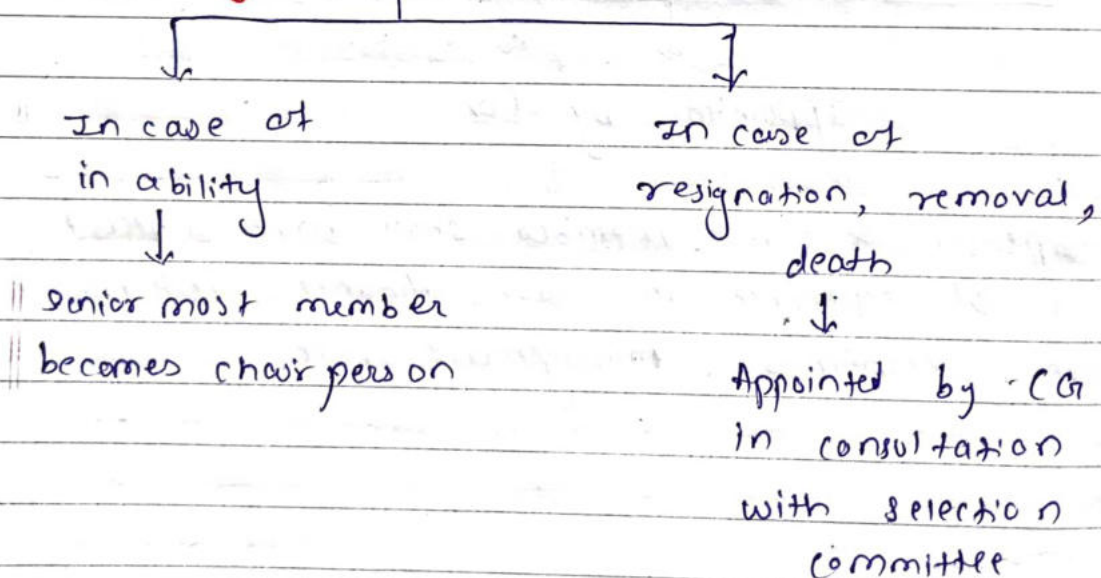 In case of
in ability
senior most member
becomes chair person
In case of
resignation, removal,
death
Appointed by CG
in consultation
with selection
committee